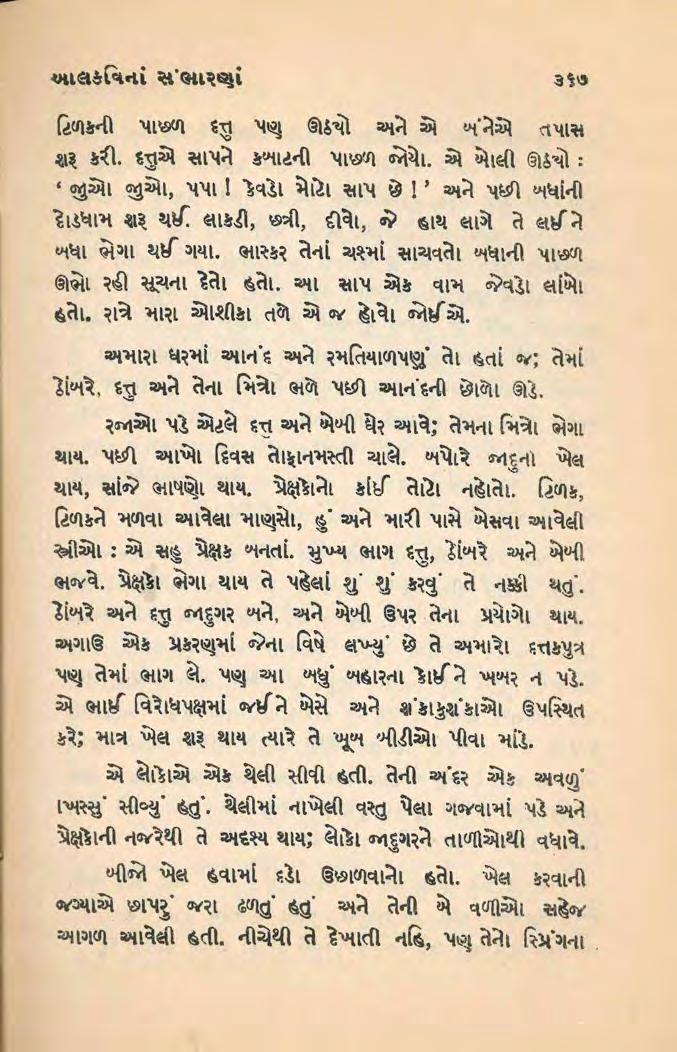 બાલકવિનાં સંભારણાં ૩૬૭
ટિળકની પાછળ દત્તુ પણ ઊઠયો અને એ બંનેએ તપાસ
શરૂ કરી. દત્તુએ સાપને કબાટની પાછળ જોયો. એ બોલી ઊઠયો :
‘ જુઓ જુઓ, પપા ! કેવડો મોટો સાપ છે ! ’ અને પછી બધાંની
દોડધામ શરૂ થઈ. લાકડી, છત્રી, દીવો, જે હાથ લાગે તે લઈને
બધા ભેગા થઈ ગયા. ભાસ્કર તેનાં ચશ્માં સાચવતો બધાની પાછળ
ઊભો રહી સૂચના દેતો હતો. આ સાપ એક વામ જેવડો લાંબો
હતો. રાત્રે મારા ઓશીકા તળે એ જ હોવો જોઈએ.
અમારા ઘરમાં આનંદ અને રમતિયાળપણું તો હતાં જ; તેમાં
ઠોંબરે, દત્તુ અને તેના મિત્રો ભળે પછી આનંદની છોળો ઊડે.
રજાઓ પડે એટલે દત્તુ અને બેબી ઘેર આવે; તેમના મિત્રો ભેગા
થાય. પછી આખો દિવસ તોફાનમસ્તી ચાલે. બપોરે જાદુના ખેલ
થાય, સાંજે ભાષણો થાય. પ્રેક્ષકોનો કાંઈ તોટો નહોતો. ટિળક,
ટિળકને મળવા આવેલા માણસો, હું અને મારી પાસે બેસવા આવેલી
સ્ત્રીઓ : એ સહુ પ્રેક્ષક બનતાં. મુખ્ય ભાગ દત્તુ, ઠોંબરે અને બેબી
ભજવે. પ્રેક્ષકો ભેગા થાય તે પહેલાં શું શું કરવું તે નક્કી થતું.
ઠોંબરે અને દત્તુ જાદુગર બને, અને બેબી ઉપર તેના પ્રયોગો થાય.
અગાઉ એક પ્રકરણમાં જેના વિષે લખ્યું છે તે અમારો દત્તકપુત્ર
પણ તેમાં ભાગ લે. પણ આ બધું બહારના કોઈને ખબર ન પડે.
એ ભાઈ વિરોધપક્ષમાં જઈને બેસે અને શંકાકુશંકાઓ ઉપસ્થિત
કરે; માત્ર ખેલ શરૂ થાય ત્યારે તે ખૂબ બીડીઓ પીવા માંડે.
એ લોકોએ એક થેલી સીવી હતી. તેની અંદર એક અવળું
ખિસ્સું સીવ્યું હતું. થેલીમાં નાખેલી વસ્તુ પેલા ગજવામાં પડે અને
પ્રેક્ષકોની નજરેથી તે અદશ્ય થાય; લોકો જાદુગરને તાળીઓથી વધાવે.
બીજો ખેલ હવામાં દડો ઉછાળવાનો હતો. ખેલ કરવાની
જગ્યાએ છાપરું જરા ઢળતું હતું અને તેની બે વળીઓ સહેજ
આગળ આવેલી હતી. નીચેથી તે દેખાતી નહિ, પણ તેનો સ્પ્રિંગના